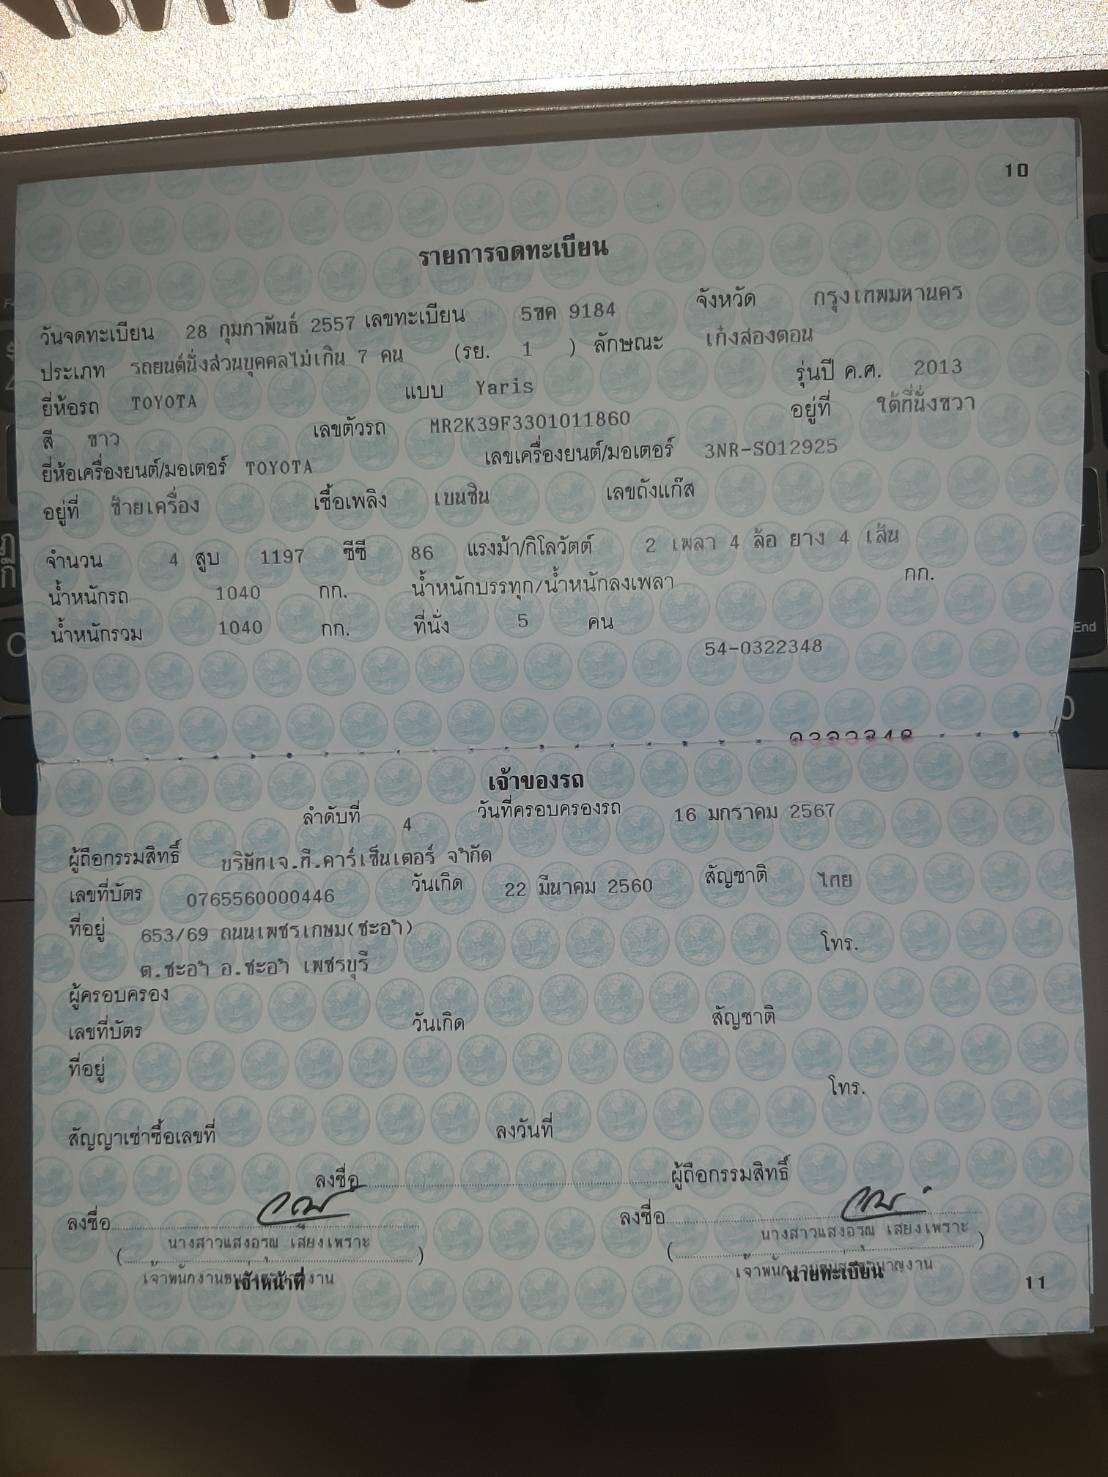 10
รายการจดทะเบียน
วันจดทะเบียน 28 กุมภาพันธ์ 2557 เลขทะเบียน 5ขค 9184 จังหวัด กรุงเทพมหานคร
ประเภท รถยนต์นั่งส่วนบุคคลไม่เกิน 7 คน (รย. 1 ) ลักษณะ เก๋งสองตอน
ยี่ห้อรถ TOYOTA แบบ Yaris รุ่นปี ค.ศ. 2013
สี ขาว เลขตัวรถ MR2K39F3301011860 อยู่ที่ ใต้ที่นั่งขวา
ยี่ห้อเครื่องยนต์/มอเตอร์ TOYOTA เลขเครื่องยนต์/มอเตอร์ 3NR-S012925
อยู่ที่ ซ้ายเครื่อง เชื้อเพลิง เบนซิน เลขถังแก๊ส
จำนวน 4 สูบ 1197 ซีซี 86 แรงม้า/กิโลวัตต์ 2 เพลา 4 ล้อ ยาง 4 เส้น
น้ำหนักรถ 1040 กก. น้ำหนักบรรทุก/น้ำหนักลงเพลา กก.
น้ำหนักรวม 1040 กก. ที่นั่ง 5 คน
54-0322348
เจ้าของรถ
ลำดับที่ 4 วันที่ครอบครองรถ 16 มกราคม 2567
ผู้ถือกรรมสิทธิ์ บริษัทเจ.ที.คาร์เซ็นเตอร์ จำกัด
เลขที่บัตร 0765560000446 วันเกิด 22 มีนาคม 2560 สัญชาติ ไทย
ที่อยู่ 653/69 ถนนเพชรเกษม(ชะอำ) โทร.
ต.ชะอำ อ.ชะอำ เพชรบุรี
ผู้ครอบครอง
เลขที่บัตร วันเกิด สัญชาติ
ที่อยู่ โทร.
สัญญาเช่าซื้อเลขที่ ลงวันที่
ลงชื่อ ผู้ถือกรรมสิทธิ์
ลงชื่อ ลงชื่อ
( นางสาวแสงอรุณ เสียงเพราะ ) ( นางสาวแสงอรุณ เสียงเพราะ )
เจ้าหน้าที่ นายทะเบียน
11